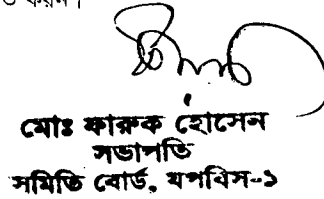 করেন।
মোঃ ফারুক হোসেন
সভাপতি
সমিতি বোর্ড, যপবিস-১